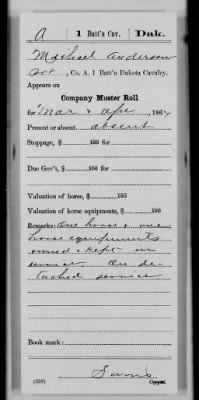 A | 1 Batt'n Cav. | Dak.
Michael Anderson
Pvt, Co. A. 1 Batt'n Dakota Cavalry.
Appears on
Company Muster Roll
for Mar & Apr, 1864
Present or absent absent
Stoppage, $ 100
Due Gov't, $ 100
Valuation of horse, $ 100
Valuation of horse equipments, $ 100
Remarks: One horse & one
horse equipments
owned & kept in
service On de-
tached service
Book mark:
(358)
Copyist.